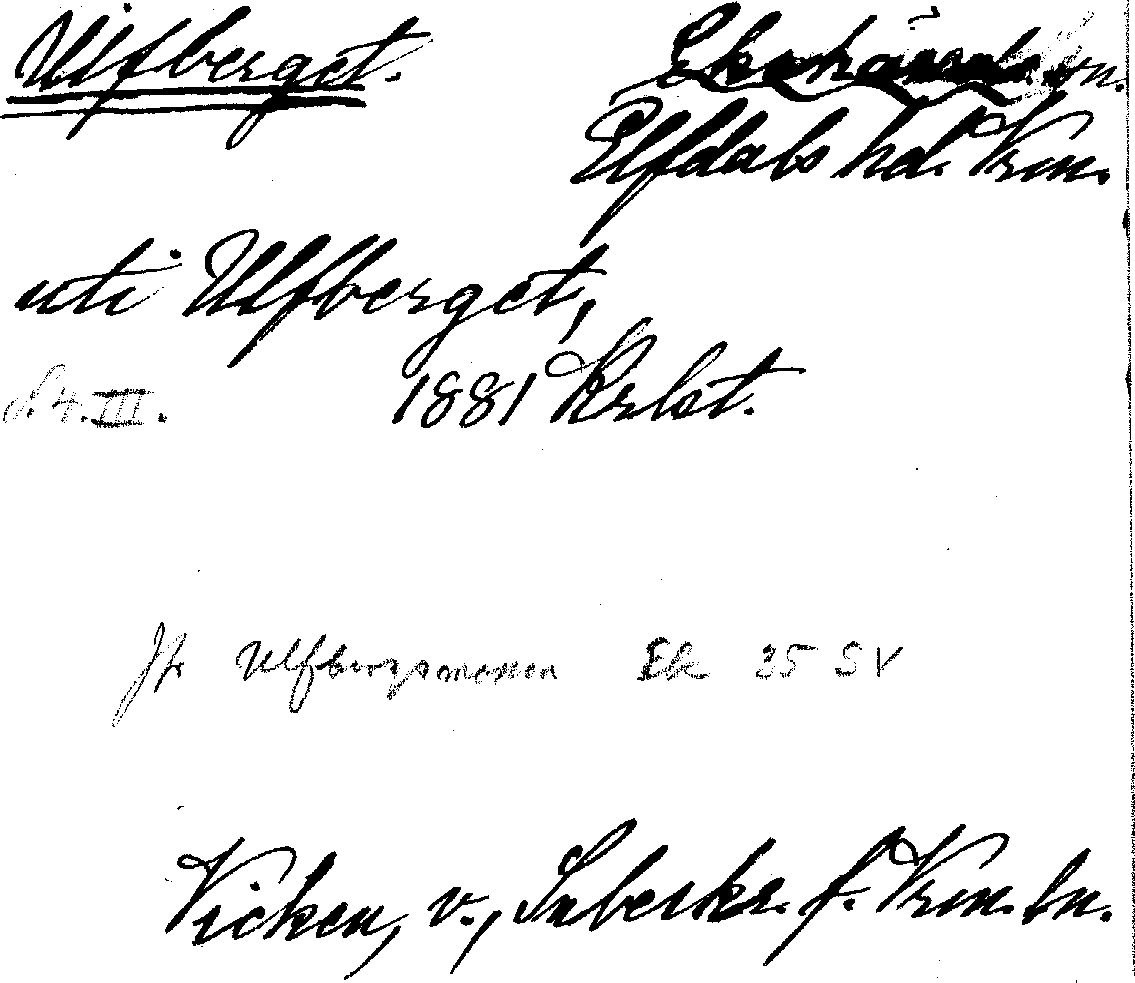 Ulfberget. Ekshärads sn.
Elfdals hd. Vrm.
uti Ulfberget,
1881 Krlst.
Jfr Ulfbergsmossen Ek 25 SV
Vicken, v., Inberkr. f. Vrm. ln.